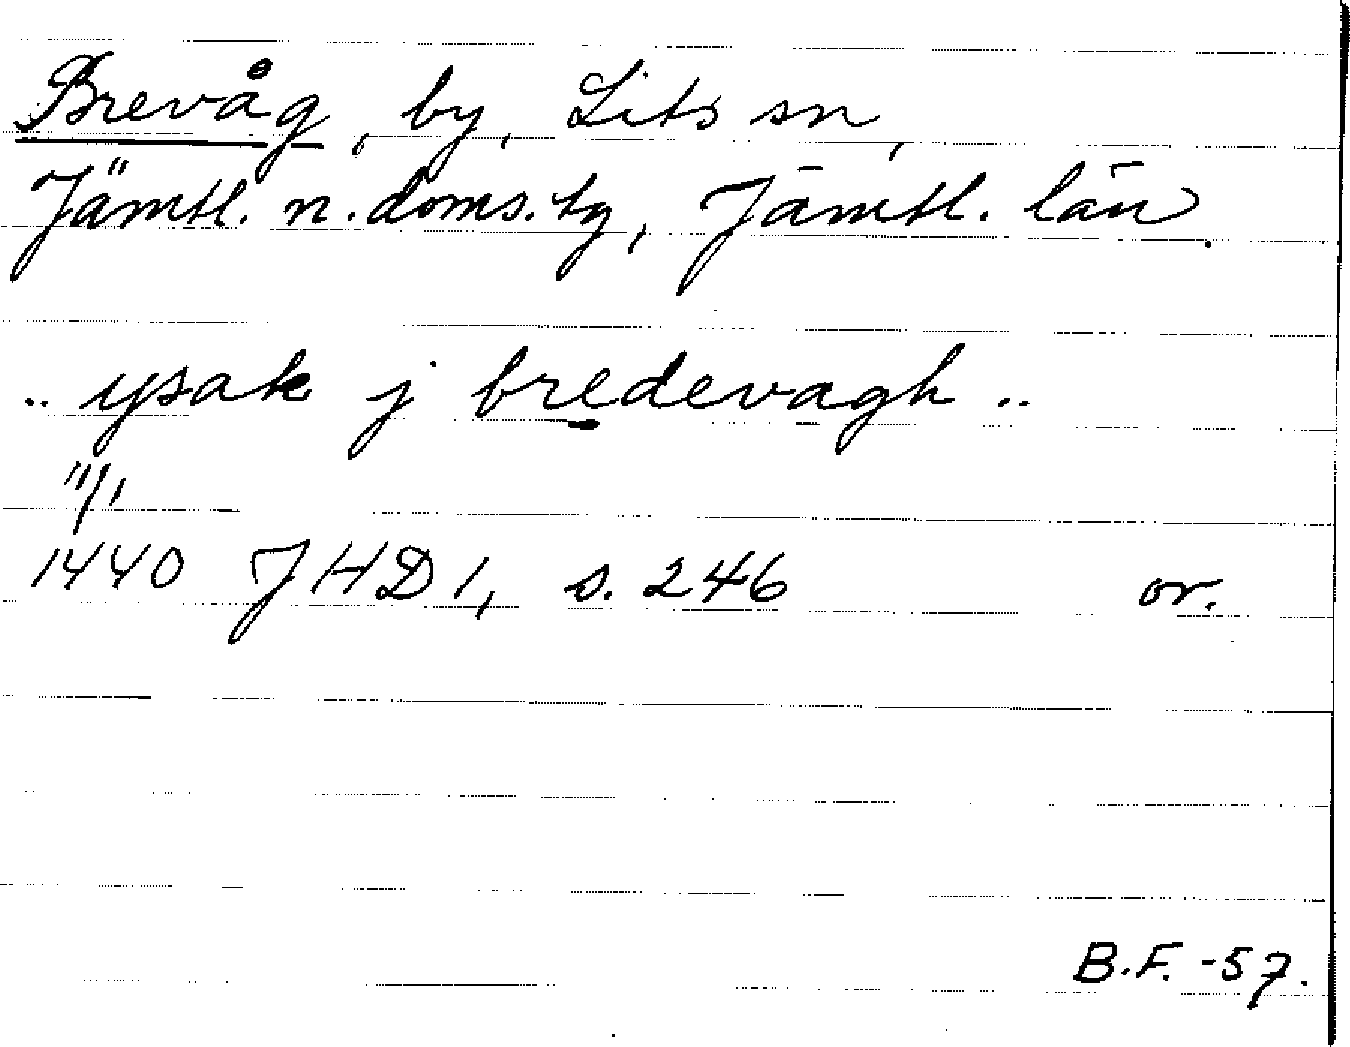 Brevåg, by, Lits sn,
Jämtl. n. doms. tg, Jämtl. län.
.. ysak j bredevagh ..
11/1
1440 JHD 1, s. 246 or.
B.F. -57.